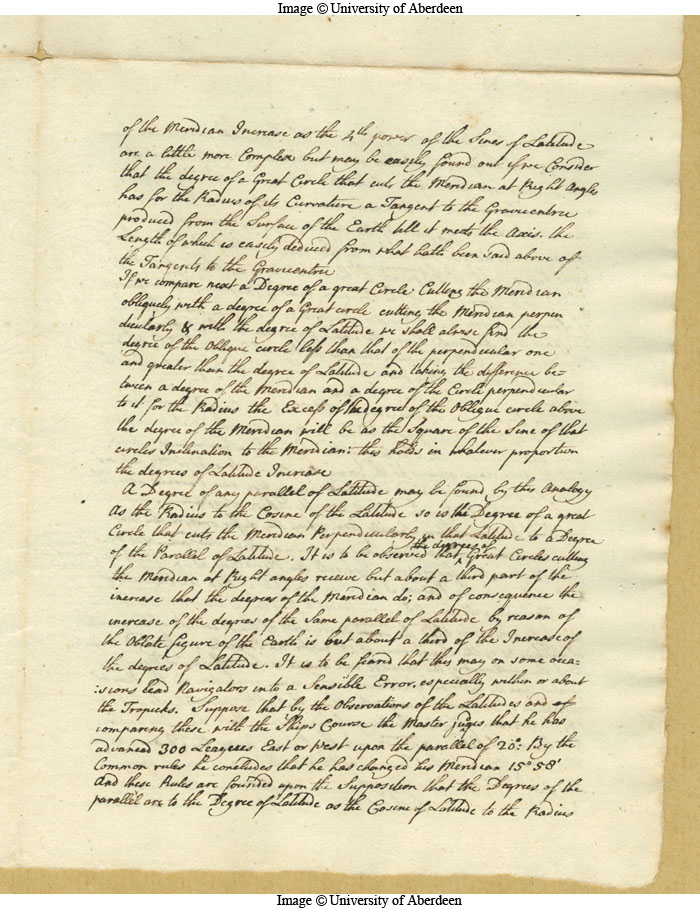 Image © University of Aberdeen
of the Meridian Increase as the 4th power of the Sines of Latitude
are a little more Complex but may be easily found out if we Consider
that the degree of a Great Circle that cuts the Meridian at Right Angles
has for the Radius of its Curvature a Tangent to the Gravicentric
produced from the Surface of the Earth till it meets the Axis. the
Length of which is easily deduced from what hath been said above of
the Tangents to the Gravicentric
If we compare next a Degree of a great Circle Cutting the Meridian
obliquely with a degree of a Great circle cutting the Meridian perpen
dicularly & with the degree of Latitude we shall always find the
degree of the Oblique circle less than that of the perpendicular one
and greater than the degree of Latitude and taking the difference be-
tween a degree of the Meridian and a degree of the Circle perpendicular
to it for the Radius the Excess of the degree of the Oblique circle above
the degree of the Meridian will be as the Square of the Sine of that
circles Inclination to the Meridian: this holds in whatever proportion
the degrees of Latitude Increase
A Degree of any parallel of Latitude may be found by this Analogy
As the Radius to the Cosine of the Latitude so is the Degree of a great
Circle that cuts the Meridian Perpendicularly in that Latitude to a Degree
of the Parallel of Latitude. It is to be observed that the degrees of Great Circles cutting
the Meridian at Right angles receive but about a third part of the
increase that the degrees of the Meridian do; and of consequence the
increase of the degrees of the Same parallel of Latitude by reason of
the Oblate figure of the Earth is but about a third of the Increase of
the degrees of Latitude. It is to be feared that this may on some occa=
=sions lead Navigators into a Sensible Error. especially within or about
the Tropicks. Suppose that by the Observations of the Latitudes and of
comparing these with the Ships Course the Master juges that he has
advanced 300 Leagues East or West upon the parallel of 20°. By the
Common rules he concludes that he has changed his Meridian 15° 58'
And these Rules are founded upon the Supposition that the Degrees of the
parallel are to the Degree of Latitude as the Cosine of Latitude to the Radius
Image © University of Aberdeen